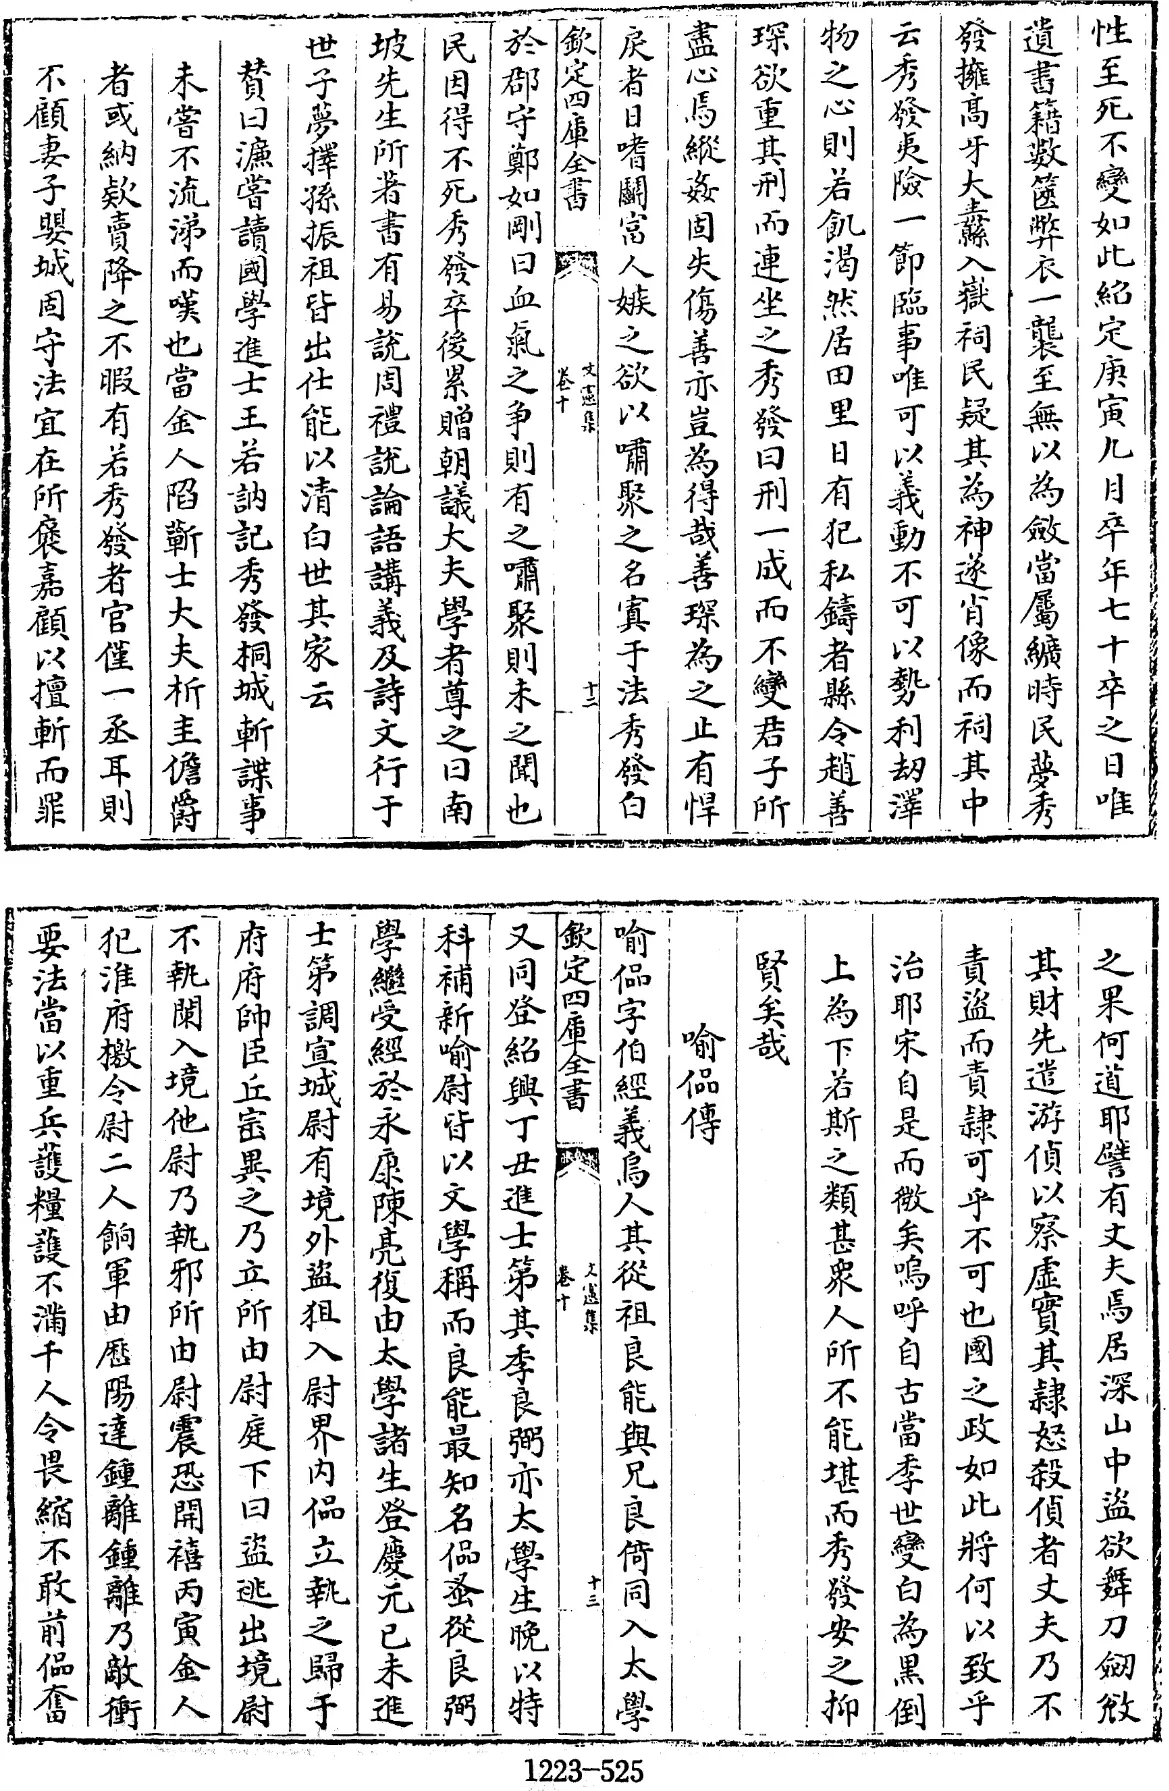 性至死不變如此紹定庚寅九月卒年七十卒之日唯
遺書籍數篋弊衣一襲至無以為斂當屬纊時民夢秀
發擁髙牙大纛入嶽祠民疑其為神遂肖像而祠其中
云秀發夷險一節臨事唯可以義動不可以勢利刼澤
物之心則若飢渴然居田里日有犯私鑄者縣令趙善
琛欲重其刑而連坐之秀發曰刑一成而不變君子所
盡心焉縱姦固失傷善亦豈為得哉善琛為之止有悍
戾者日嗜鬬富人嫉之欲以嘯聚之名寘于法秀發白
欽定四庫全書
文憲集
卷十
十三
於郡守鄭如剛曰血氣之争則有之嘯聚則未之聞也
民因得不死秀發卒後累贈朝議大夫學者尊之曰南
坡先生所著書有易說周禮說論語講義及詩文行于
世子夢擇孫振祖皆出仕能以清白世其家云
贊曰濂嘗讀國學進士王若訥記秀發桐城斬諜事
未嘗不流涕而嘆也當金人陷蘄士大夫析圭儋爵
者或納欵賣降之不暇有若秀發者官僅一丞耳則
不顧妻子嬰城固守法宜在所襃嘉顧以擅斬而罪
之果何道耶譬有丈夫焉居深山中盜欲舞刀劒攽
其財先遣游偵以察虛實其隷怒殺偵者丈夫乃不
責盜而責隷可乎不可也國之政如此將何以致乎
治耶宋自是而微矣嗚呼自古當季世變白為黒倒
上為下若斯之類甚衆人所不能堪而秀發安之抑
賢矣哉
喻偘傳
喻偘字伯經義烏人其從祖良能與兄良倚同入太學
欽定四庫全書
文憲集
卷十
十三
又同登紹興丁丑進士第其季良弼亦太學生晩以特
科補新喻尉皆以文學稱而良能最知名偘蚤從良弼
學繼受經於永康陳亮復由太學諸生登慶元己未進
士第調宣城尉有境外盜狙入尉界内偘立執之歸于
府府帥臣丘崈異之乃立所由尉庭下曰盜逃出境尉
不執闌入境他尉乃執邪所由尉震恐開禧丙寅金人
犯淮府檄令尉二人餉軍由歴陽達鍾離鍾離乃敵衝
要法當以重兵護糧護不滿千人令畏縮不敢前偘奮
1223-525